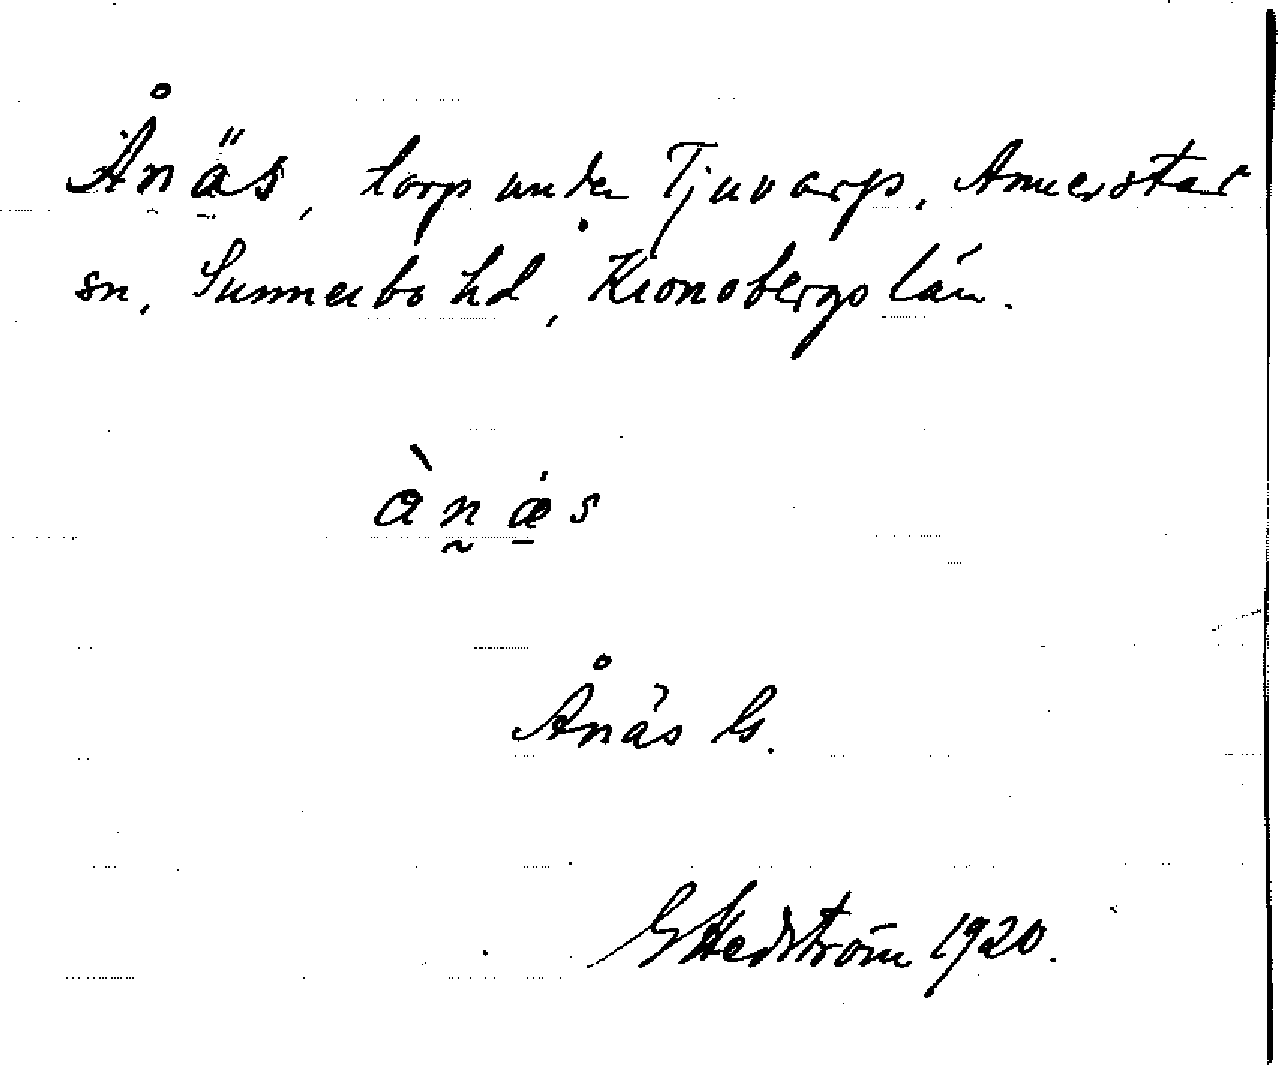 Ånäs, torp under Tjuvarp, Annerstad
sn, Sunnerbo hd, Kronobergs län.
ànǽs
Ånäs G.
G Hedström 1920.